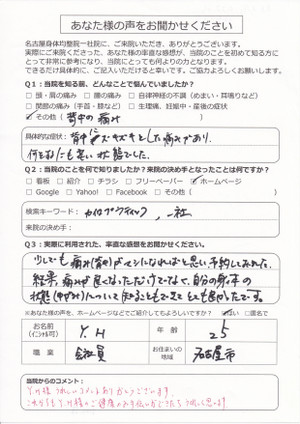 あなた様の声をお聞かせください
名古屋身体均整院一社院に、ご来院いただき、ありがとうございます。
実際にご来院くださった、あなた様の率直な感想が、当院のことを初めて知る方に
とって非常に参考になり、当院にとっても何よりの力となります。
できるだけ具体的に、ご記入いただけると幸いです。ご協力よろしくお願いします。
Q1:当院を知る前、どんなことで悩んでいましたか?
□ 頭・肩の痛み □ 腰の痛み □ 自律神経の不調(めまい・耳鳴りなど)
□ 関節の痛み(手首・膝など) □ 生理痛、妊娠中・産後の症状
☑ その他( 背中の痛み )
具体的な症状: 背中にズキズキとした痛みがあり、
何をするにも思い状態でした。
Q2:当院のことを何で知りましたか?来院の決め手となったことは何ですか?
□ 看板 □ 紹介 □ チラシ □ フリーペーパー ☑ ホームページ
□ Google □ Yahoo! □ Facebook □ その他( )
検索キーワード: カイロプラクティック, 一社
来院の決め手:
Q3:実際に利用された、率直な感想をお聞かせください。
少しでも痛み(背中)がマシになればと思い、予約してみました。
結果、痛みが良くなっただけでなく、自分の身体の
状態(ゆがみ)について知ることもできてとても良かったです。
※あなた様の声を、ホームページなどでご紹介してもよろしいですか? ☑はい □匿名
お名前
(イニシャル可)
Y.H
年齢
25
職業
会社員
お住まいの
地域
名古屋市
当院からのコメント:
Y.H様 うれしいコメントありがとうございます。
これからもY.H様のご健康のお手伝いができたらうれしく思います。